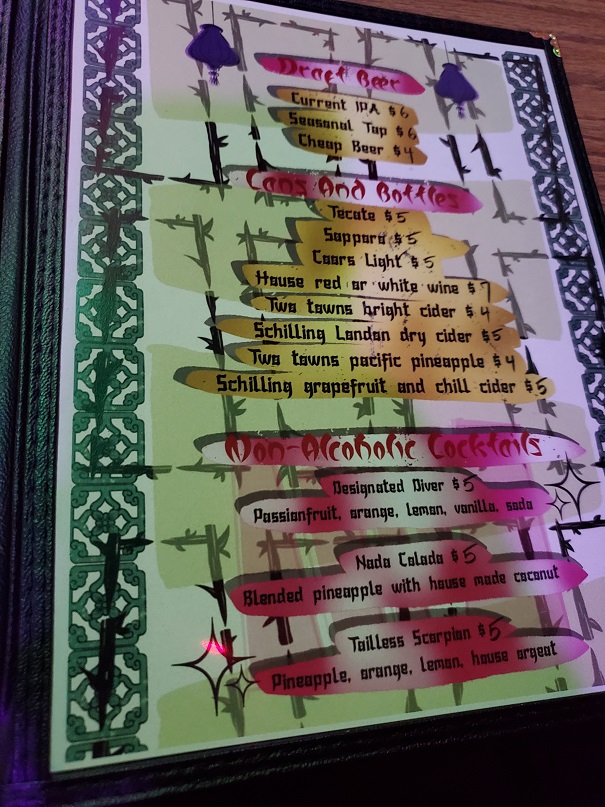 Draft Beer
Current IPA $6
Seasonal Tap $6
Cheap Beer $4
Cans And Bottles
Tecate $5
Sapporo $5
Coors Light $5
House red or white wine $7
Two towns bright cider $4
Schilling London dry cider $5
Two towns pacific pineapple $4
Schilling grapefruit and chili cider $5
Non-Alcoholic Cocktails
Designated Diver $5
Passionfruit, orange, lemon, vanilla, soda
Nada Colada $5
Blended pineapple with house made coconut
Tailless Scorpion $5
Pineapple, orange, lemon, house orgeat